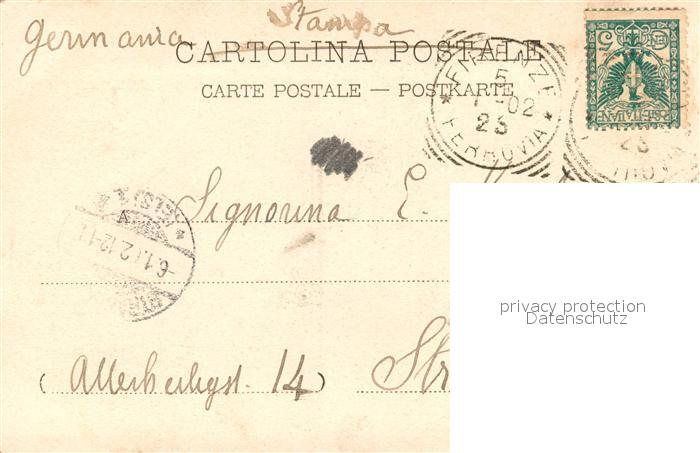 Stampa
Germania
CARTOLINA POSTALE
CARTE POSTALE — POSTKARTE
FIRENZE
5
1-02
23
* FERROVIA *
5
POSTE ITALIANE
23
Signorina E.
-6.1.02.12-1
privacy protection
Datenschutz
(Allerheiligst. 14) Str